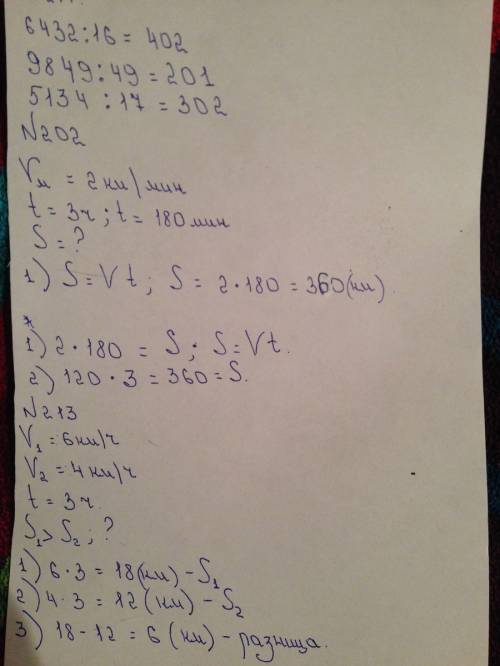 6432:16 = 402
9849:49 = 201
5134:17 = 302
N202
Vм = 2км/мин
t = 3ч; t = 180мин
S = ?
1) S = Vt; S = 2·180 = 360(км).
*
1) 2·180 = S; S = Vt.
2) 120·3 = 360 = S.
N213
V₁ = 6км/ч
V₂ = 4км/ч
t = 3ч.
S₁ > S₂; ?
1) 6·3 = 18(км) - S₁
2) 4·3 = 12(км) - S₂
3) 18-12 = 6(км) - разница.